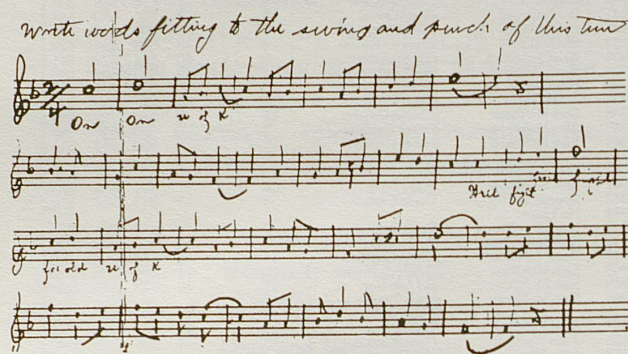 Write words fitting to the swing and punch of this tune
On On U of K
fight
for old U of K